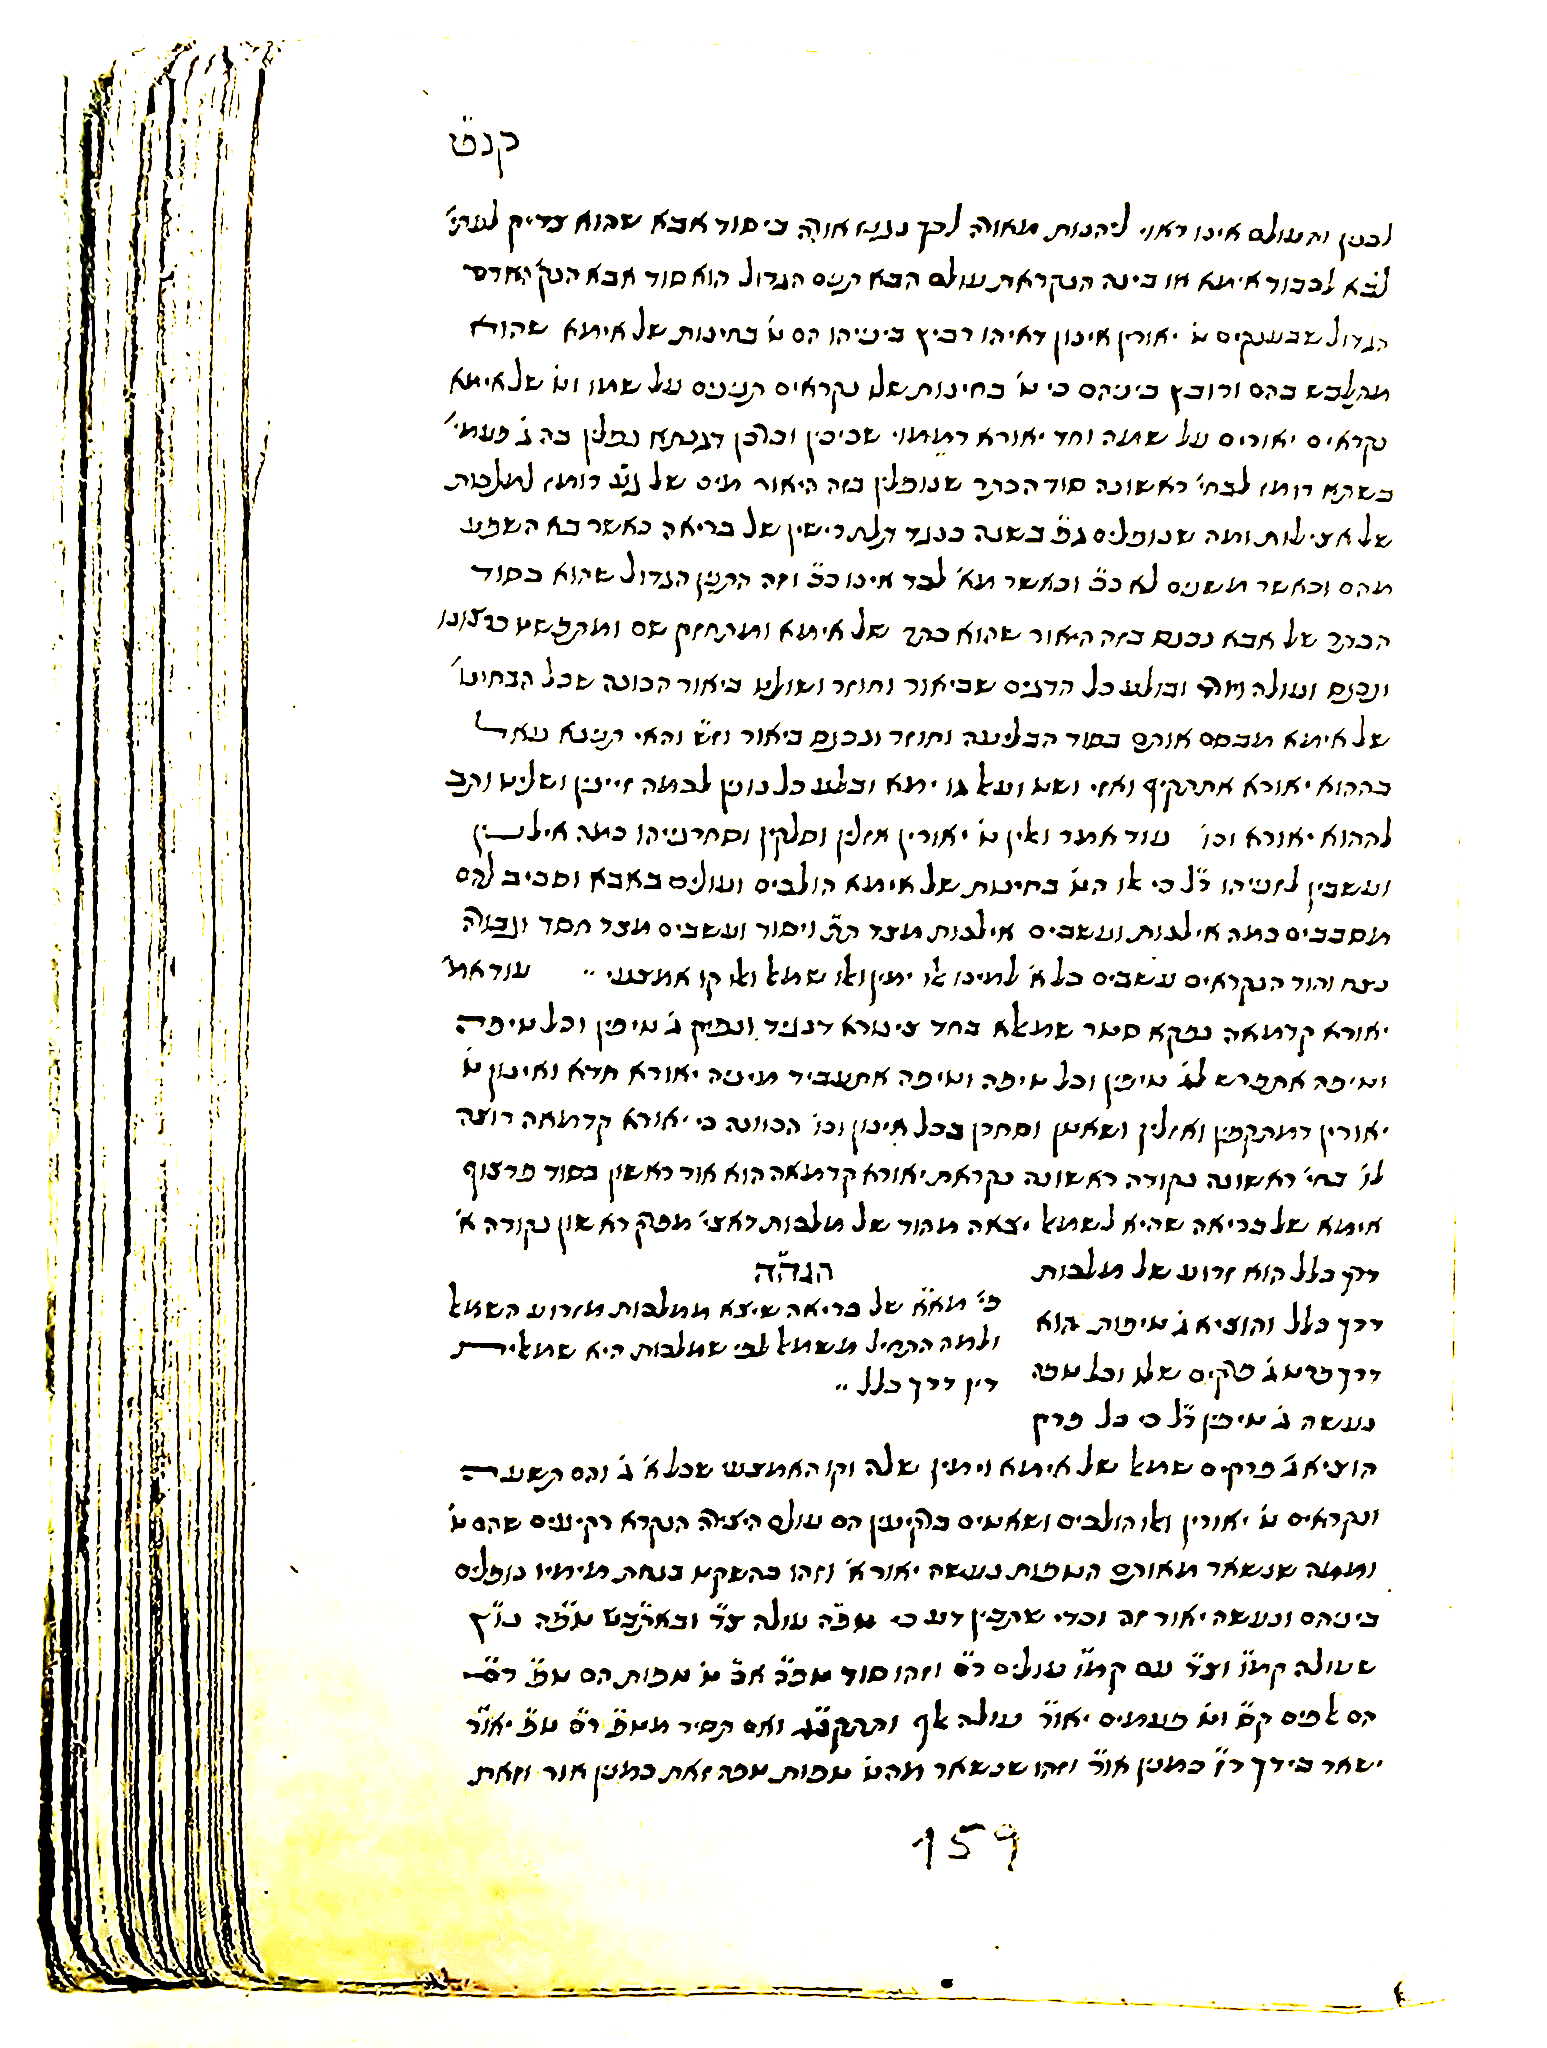 קנ״ט
לבנין והעולם אינו ראוי ליהנות מאורה לכך נגנז אורה ביסוד אבא שהוא צדיק לעתי׳
לבא לכבוד אימא או בינה הנקראת עולם הבא תנים הגדול הוא סוד אבא הנק׳ אדם
הגדול שבענקים ט׳ יאורין אינון דאיהו רביץ בינייהו הם ט׳ בחינות של אימא שהוא
מתלבש בהם ורובץ ביניהם כי ט׳ בחינות שלו נקראים תנינים על שמו וט׳ של אימא
נקראים יאורים על שמה וחד יאורא דמימוי שכיכין וברכן דגנתא נפלין בה ג׳ פעמי׳
בשתא רומז לבחי׳ ראשונה סוד הכתר שנופלין בזה היאור מים של רומז למלכות
של אצילות ומה שנופלים ג״פ בשנה כנגד תלת רישין של בריאה כאשר בא השפע
מהם וכאשר משנים לא כ״כ וכאשר מא׳ לבד אינו כ״כ וזה התנין הגדול שהוא בסוד
הכתר של אבא נכנס בזה היאור שהוא כתר של אימא ומתחזק שם ומתפשט כרצונו
ונכנס ועולה ובולע כל הדגים שביאור וחוזר ושולט ביאור הכונה שכל הבחינו׳
של אימא מבסם אותם בסוד הבליעה וחוזר ונכנס ביאור וז״ש והאי תנינא עאל
בההוא יאורא אתתקיף ואזי ושט ועאל גו ימא ובלע כל נונין לכמה זיינין ושליט ותב
לההוא יאורא וכו׳ עוד אמר ואלין ט׳ יאורין אזלין וסלקין וסחרנייהו כמה אילנין
ועשבין לזנייהו ר״ל כי אלו הט׳ בחינות של אימא הולכים ועולים באבא וסביב להם
מסבבים כמה אילנות ועשבים אילנות מצד ת״ת ויסוד ועשבים מצד חסד וגבורה
נצח והוד הנקראים עשבים כל א׳ למינו או ימין ואו שמאל ואו קו אמצעי ״ עוד אמ׳
יאורא קדמאה נפקא סטר שמאלא בחד צינורא דנגיד ונפיק ג׳ טיפין וכל טיפה
וטיפה אתפרש לג׳ טיפין וכל טיפה וטיפה אתעביד מיניה יאורא חדא ואינון ט׳
יאורין דמתקפין ואזלין ושאטין וסחרן בכל אינון וכו׳ הכוונה כי יאורא קדמאה רוצה
לו׳ בחי׳ ראשונה נקודה ראשונה נקראת יאורא קדמאה הוא אור ראשון בסוד פרצוף
אימא של בריאה שהיא לשמאל יצאה מהוד של מלכות דאצי׳ מפרק ראשון נקודה א׳
דרך כלל הוא זרוע של מלכות
דרך כלל והוציא ג׳ טיפות הוא
דרך פרט ג׳ פרקים שלו וכל טפה
נעשה ג׳ טיפין ר״ל כי כל פרק
הגה״ה
כי׳ מא״א של בריאה שיצא ממלכות מזרוע השמאל
ולמה התחיל משמאל לפי שמלכות היא שמאלית
דין דרך כלל ״
הוציא ג׳ פרקים שמאל של אימא וימין שלה וקו האמצעי שכל א׳ ג׳ והם תשעה
ונקראים ט׳ יאורין ואלו הולכים ושאטים ברקיעין הם עולם היצירה הנקרא רקיעים שהם ט׳
וממה שנשאר מאותם הטפות נעשה יאור א׳ וזהו כהשקט בנחת מימיו נופלים
ביניהם ונעשה יאור זה וכדי שתבין דע כי טפ״ה עולה צ״ד ובא״ת ב״ש טפ״ה נו״ץ
שעולה קמ״ו וצ״ד עם קמ״ו עולים ר״מ וזהו סוד טפ״ה א״ב ט׳ טפות הם ט״פ ר״מ
הם אלפים ק״ס וט׳ פעמים יאו״ר עולה אלף ותתקנ״ג ואם תסיר מט״פ ר״מ ט״פ יאו״ר
ישאר בידך ר״ז כמנין או״ר וזהו שנשאר מהט׳ טפות טפה זאת כמנין אור וזאת
159